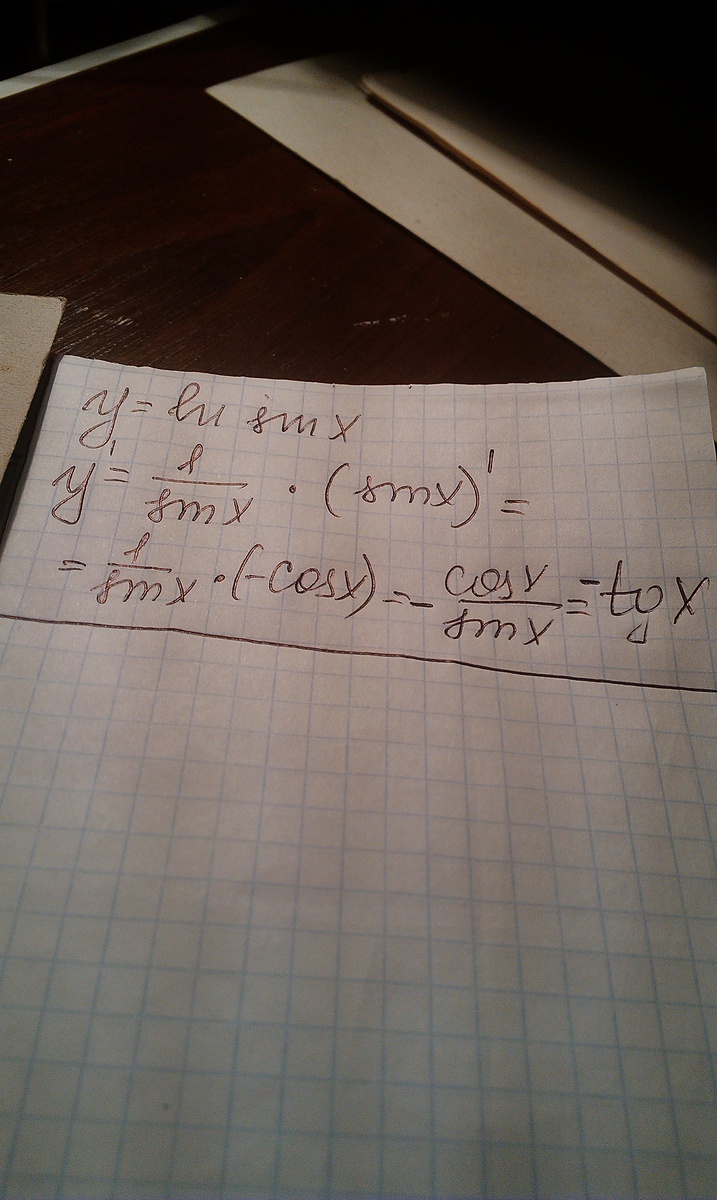 y = ln sin x
y' = 1/sin x · (sin x)' =
= 1/sin x · (-cos x) = - cos x/sin x = -tg x